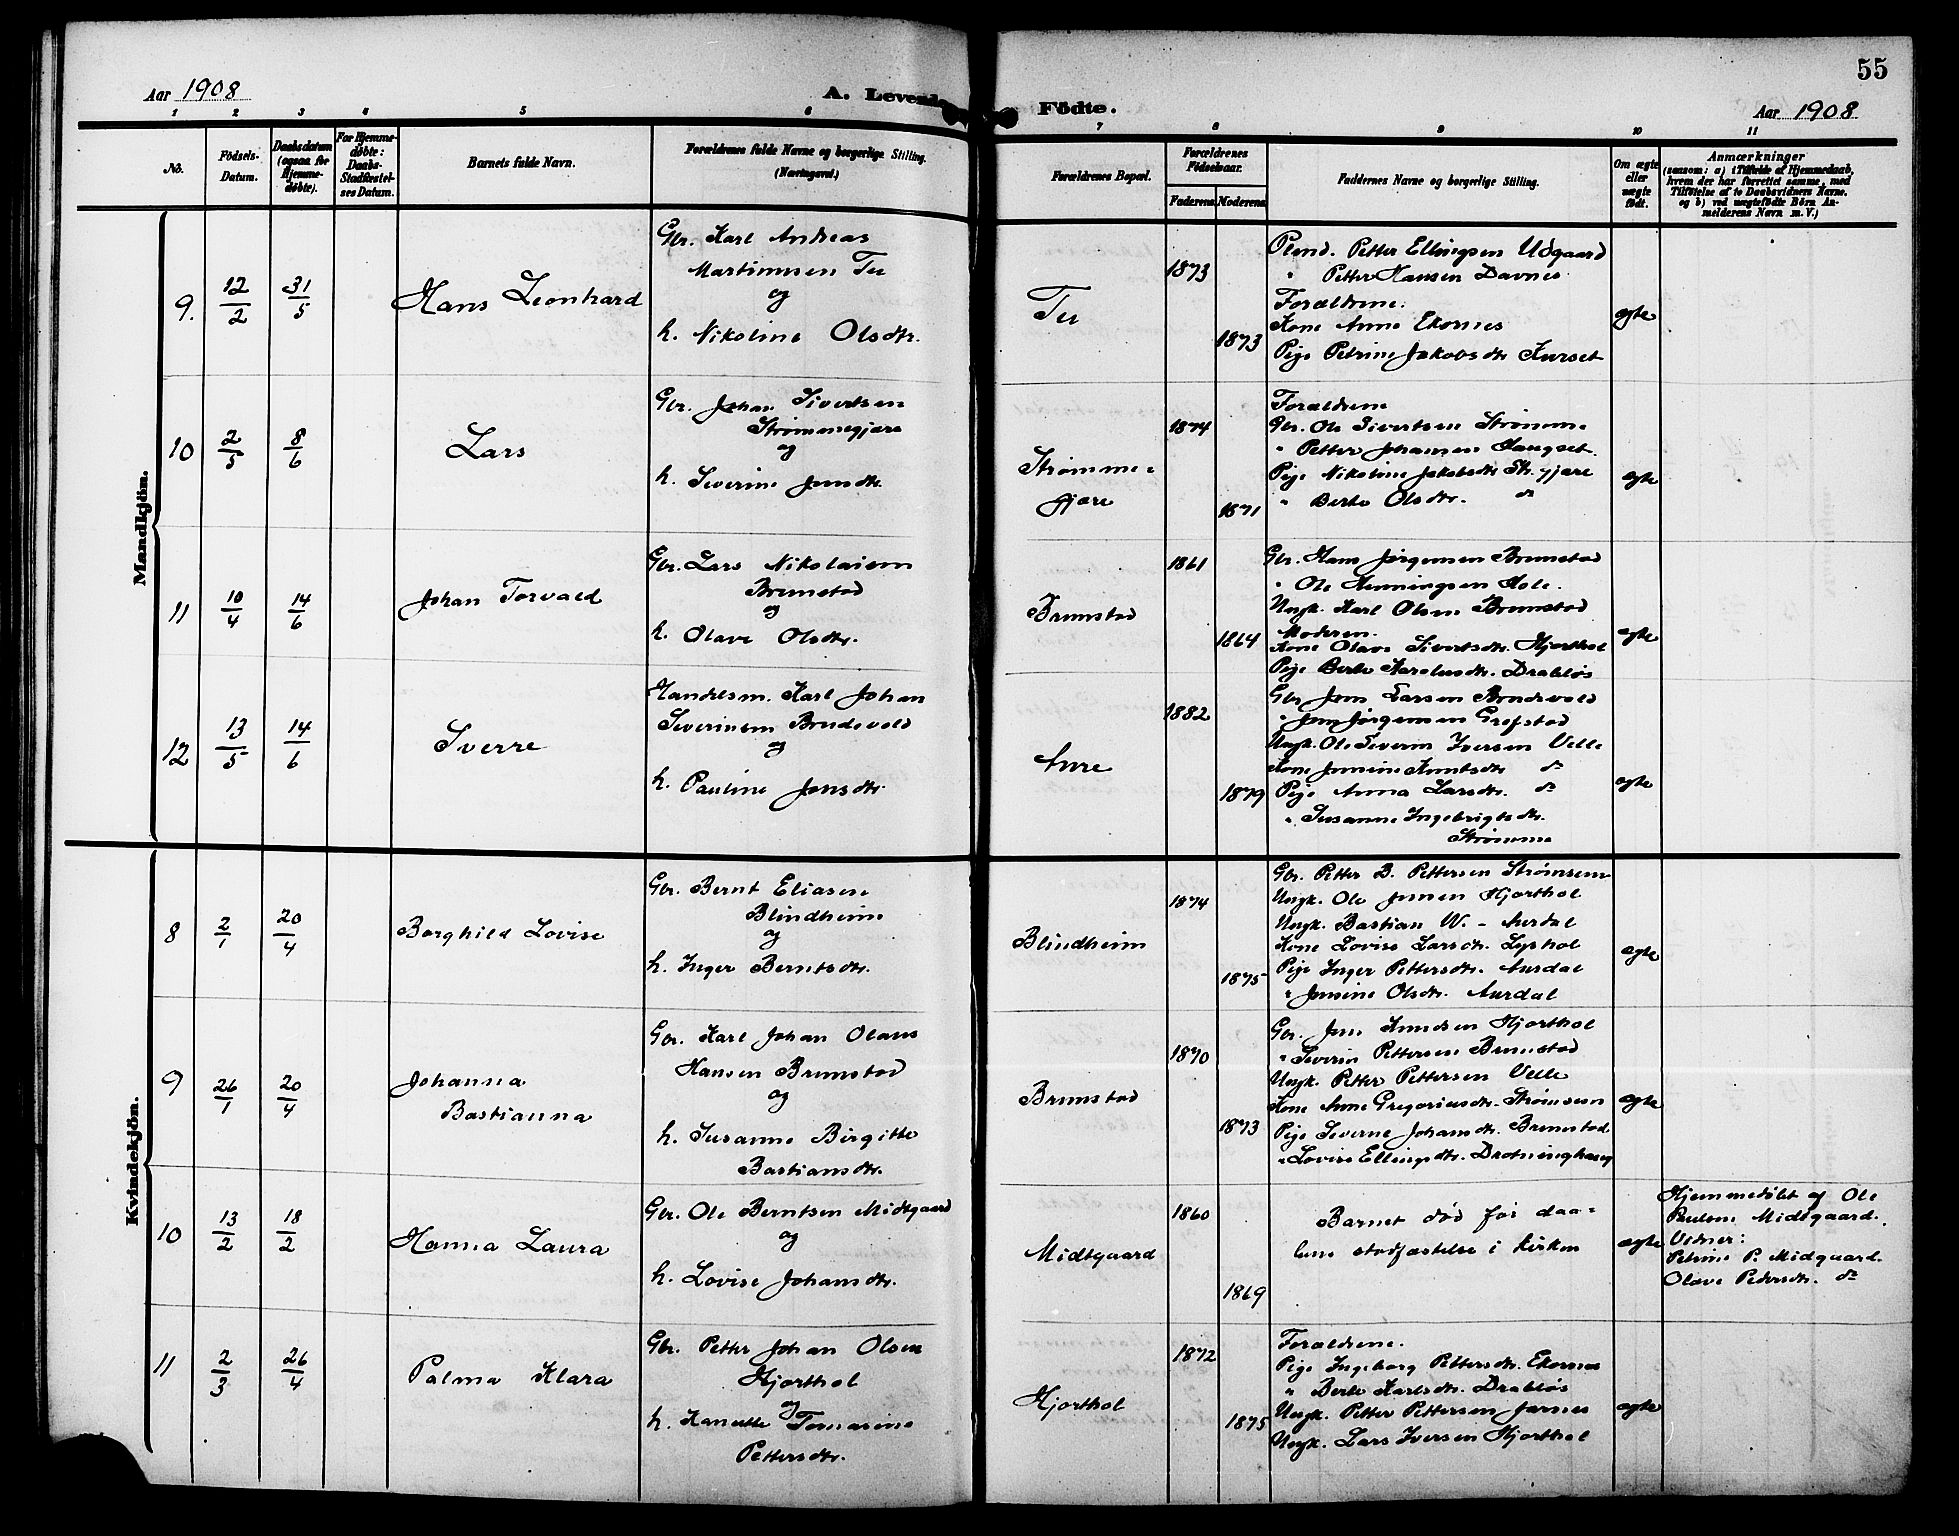 55
Aar 1908
A. Levende
Fødte.
Aar 1908
1 2 3 4 5 6 7 8 9 10 11
No.
Fødsels-Datum.
Daabsdatum (ogsaa for Hjemmedøbte).
For Hjemmedøbte: Daabs-Stadfæstelses Datum.
Barnets fulde Navn.
Forældrenes fulde Navne og borgerlige Stilling. (Næringsvei.)
Forældrenes Bopæl.
Forældrenes Fødselsaar.
Faderens Moderens
Faddernes Navne og borgerlige Stilling.
Om ægte eller uægte født.
Anmærkninger
(saasom: a) i Tilfælde af Hjemmedaab, hvem der har forrettet samme, med Tilføielse af to Daabsvidners Navne. og b) ved uægtefødte Børn Anmelderens Navn m. V.)
Mandkjøn.
9. 12/2 31/5 Hans Leonhard
Gbr. Karl Andreas
Martinusen Tu
og
h. Nikoline Olsdtr.
Tu
1873
1873
Petter Ellingsen Udgaard
" Petter Hansen Davnes
Forældrene:
Kone Anne Ekornes
Pige Petrine Jakobsdtr Kurset
ægte
10 2/5 8/6 Lars
Gbr. Johan Sivertsen
Strømmegjære
og
h. Severine Jensdtr.
Strømme-
gjære
1874
1871
Forældrene
Gbr. Ole Sivertsen Strømme
" Petter Johansen Haugset.
Pige Nikoline Jakobsdtr Str.gjære
" Berte Olsdtr. do
ægte
11 10/4 14/6 Johan Torvald
Gbr. Lars Nikolaisen
Brunstad
og
h. Olave Olsdtr.
Brunstad
1861
1864
Gbr. Hans Jørgensen Brunstad
" Ole Henningsen Hole.
Ungk. Karl Olsen Brunstad
Moderen.
Kone Olave Sivertsdtr. Hjorthol
Pige Berte Karolusdtr. Drabløs
ægte
12 13/5 14/6 Sverre
Handelsm. Karl Johan
Severinsen Brudevold
og
h. Pauline Jonsdtr.
Aure
1882
1879
Gbr Jon Larsen Brudevold
" Jon Jørgensen Grepstad
Ungk. Ole Severin Iversen Velle
Kone Jensine Knutsdtr do
Pige Anna Larsdtr. do
" Susanne Ingebrigtsdtr.
Strømme
ægte
Kvindekjøn.
8 2/1 20/4 Borghild Lovise
Gbr. Bernt Eliasen
Blindheim
og
h. Inger Berntsdtr.
Blindheim
1874
1875
Gbr. Petter B. Pettersen Strømsem
Ungk. Ole Jensen Hjorthol
Ungk. Bastian W. - Aurdal
Kone Lovise Larsdtr. Lyshol
Pige Inger Pettersdtr. Aurdal
" Jensine Olsdtr. Aurdal
ægte
9 26/1 20/4 Johanna
Bastianna
Gbr. Karl Johan Olaus
Hansen Brunstad
og
h. Susanne Birgitte
Bastiansdtr.
Brunstad
1870
1873
Gbr. Jon Knudsen Hjorthol
" Severin Pettersen Brunstad
Ungk. Petter Pettersen Velle
Kone Anne Gregoriusdtr. Strømsem
Pige Severine Johansdtr. Brunstad
" Lovise Ellingsdtr. Drotninghaug
ægte
10 13/2 18/2 Hanna Laura
Gbr. Ole Berntsen Midtgaard
og
h. Lovise Johansdtr.
Midtgaard
1860
1869
Barnet død før daa-
bens stadfæstelse i kirken
ægte
Hjemmedøbt af Ole
Paulsen Midtgaard.
Vidner:
Petrine P. Midgaard.
Olave Pedersdtr. do
11 2/3 26/4 Palma Klara
Gbr. Petter Johan Olsen
Hjorthol
og
h. Hanette Tomasine
Pettersdtr.
Hjorthol
1872
1875
Forældrene.
Pige Ingeborg Pettersdtr. Ekornes
" Berte Karlsdtr. Drabløs
Ungk. Petter Pettersen Jarnes
Ungk. Lars Iversen Hjorthol
ægte